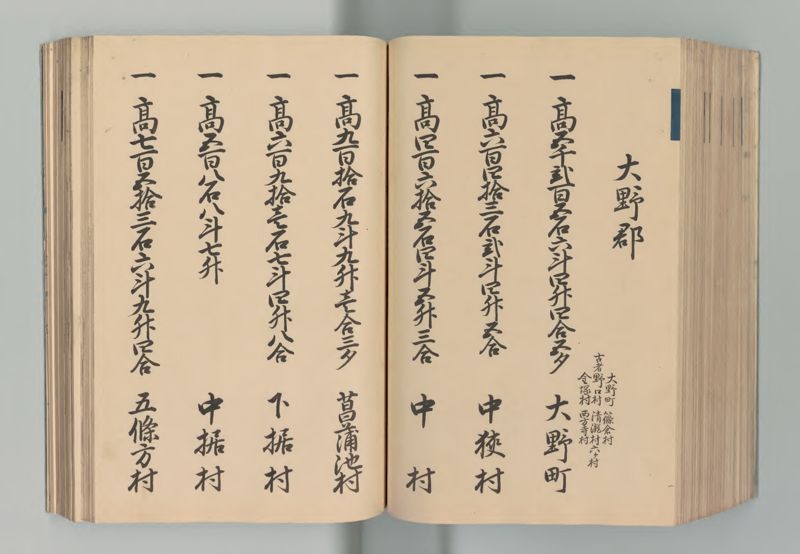 大野郡
一 高五千弐百五石六斗四升四合五夕 大野町
大野町 篠倉村
古者野口村 清瀧村六ケ村
金塚村 西方寺村
一 高六百四拾三石弐斗四升五合 中狹村
一 高四百六拾五石四斗五升三合 中村
一 高九百拾石九斗九升壱合三夕 菖蒲池村
一 高六百九拾壱石七斗四升八合 下据村
一 高五百八石八斗七升 中据村
一 高七百五拾三石六斗九升四合 五條方村